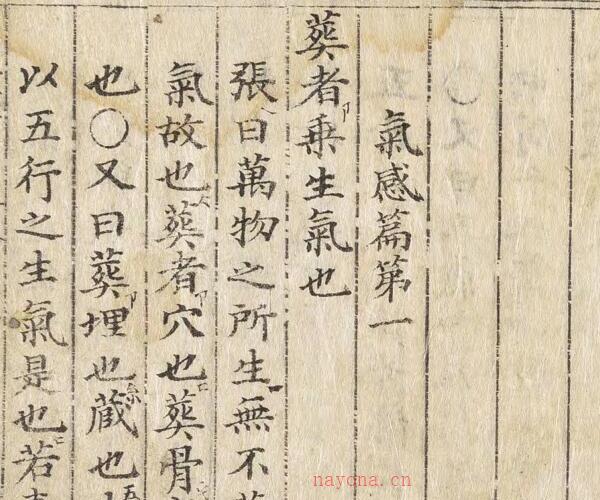 氣感篇第一
葬者乘生氣也
張曰萬物之所生無不
氣故也葬者穴也葬骨
也〇又曰葬埋也蔵也
以五行之生氣是也若
nayona.cn